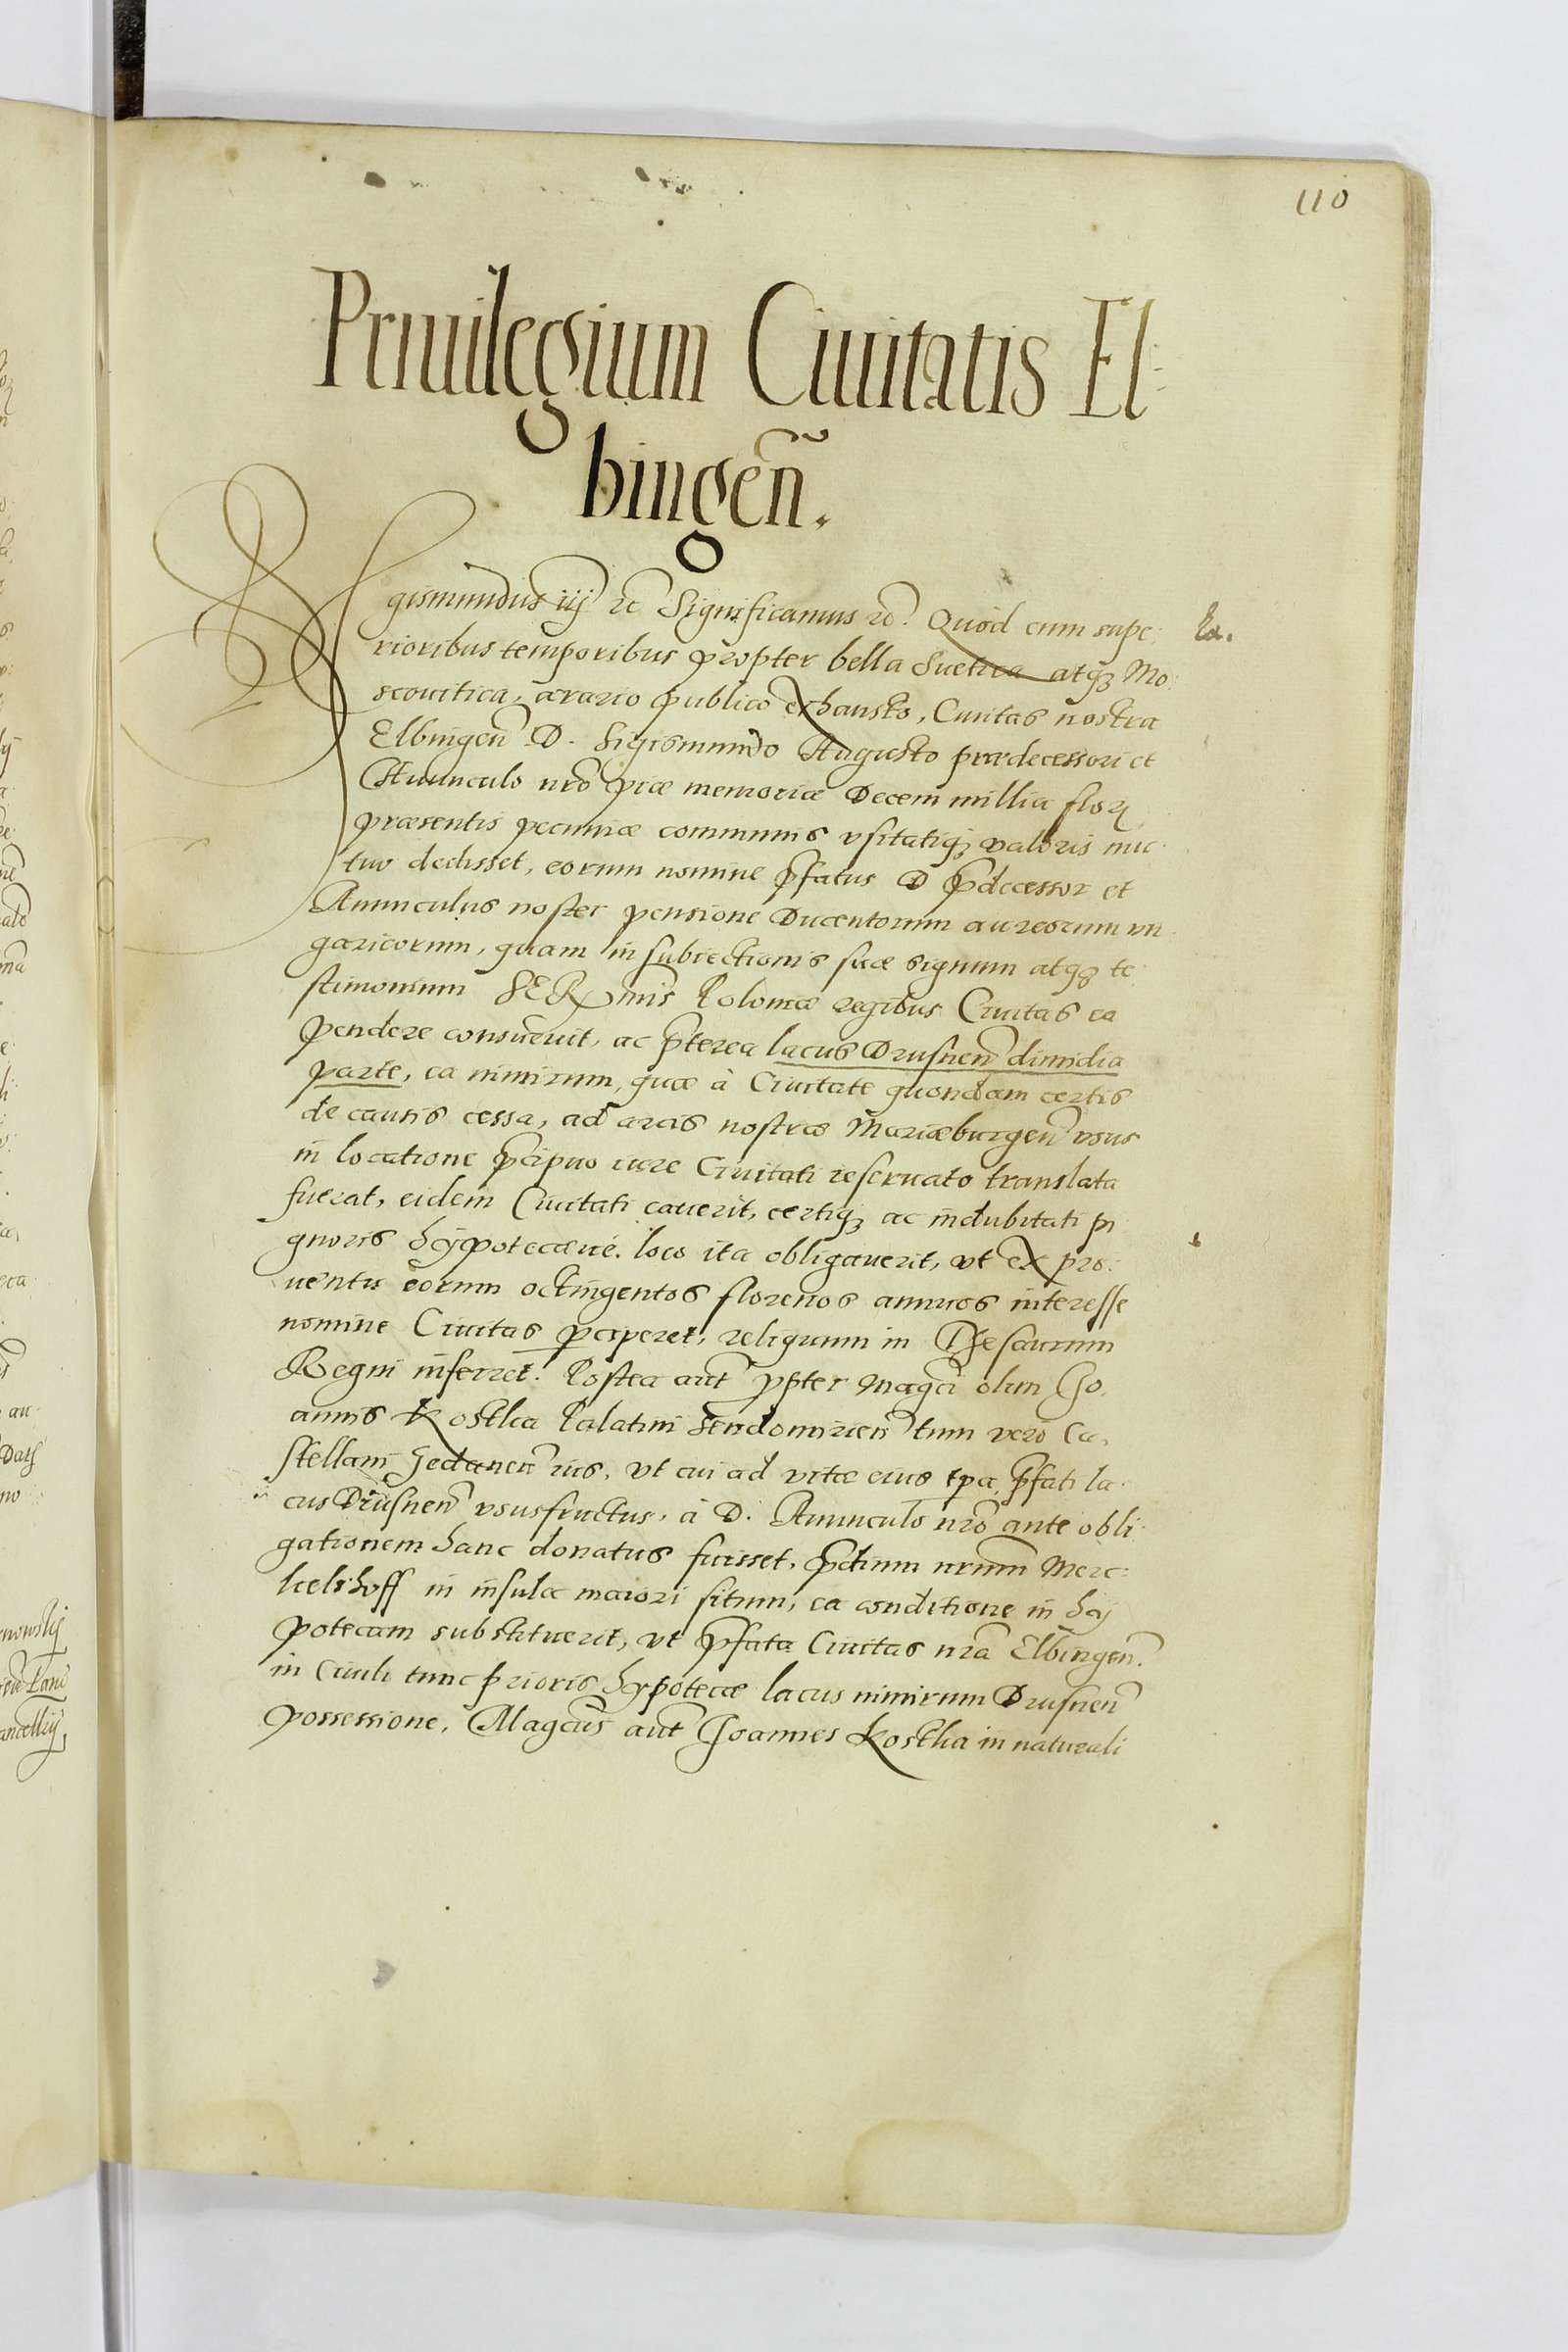 110
Priuilegium Ciuitatis El:
bingen̄.
Sigismundus iij etc Significamus etc. Quod cum supe: La.
rioribus temporibus propter bella Suetica atq3 Mo:
scouitica, ærario publico exhausto, Ciuitas nostra
Elbingen̄ D. Sigismundo Augusto prædecessori et
Auunculo nr̄o piæ memoriæ Decem millia flor.
præsentis pecuniæ communis vsitatiq3 valoris mu:
tuo dedisset, eorum nomine p̄fatus D p̄decessor et
Auunculus noster pensione Ducentorum aureorum vn
garicorum, quam in subiectionis suæ signum atq3 te:
stimonium SERmis Poloniæ regibus Ciuitas ea
pendere consueuit, ac p̄terea lacus Drusnen̄ dimidia
parte, ea nimirum, quæ à Ciuitate quondam certis
de causis cessa, ad arcis nostræ Mariæburgen̄ vsus
in locatione p̄cipuo iure Ciuitati reseruato translata
fuerat, eidem Ciuitati cauerit, certiq3 ac indubitati pi
gnoris hypotecæué loco ita obligauerit, vt ex pro:
uentu eorum octingentos florenos annuos interesse
nomine Ciuitas perciperet, reliquum in Thesaurum
Regni inferret. Postea aut̄ ppter Magci olim Jo,
annis Kostka Palatini Sendomirien̄ tum vero Ca,
stellani Gedanen̄ ius, vt cui ad vitæ eius tpa p̄fati la:
cus Drusnen̄ vsusfructus, à D. Auunculo nr̄o ante obli:
gationem hanc donatus fuisset, p̄dium nr̄um Merc:
helshoff in insula maiori situm, ea conditione in hy
potecam substituerit, vt p̄fata Ciuitas nr̄a Elbingen̄.
in Ciuili tunc prioris hypotecæ lacus nimirum Drusnen̄
possessione, Magcus aut̄ Joannes Kostka in naturali